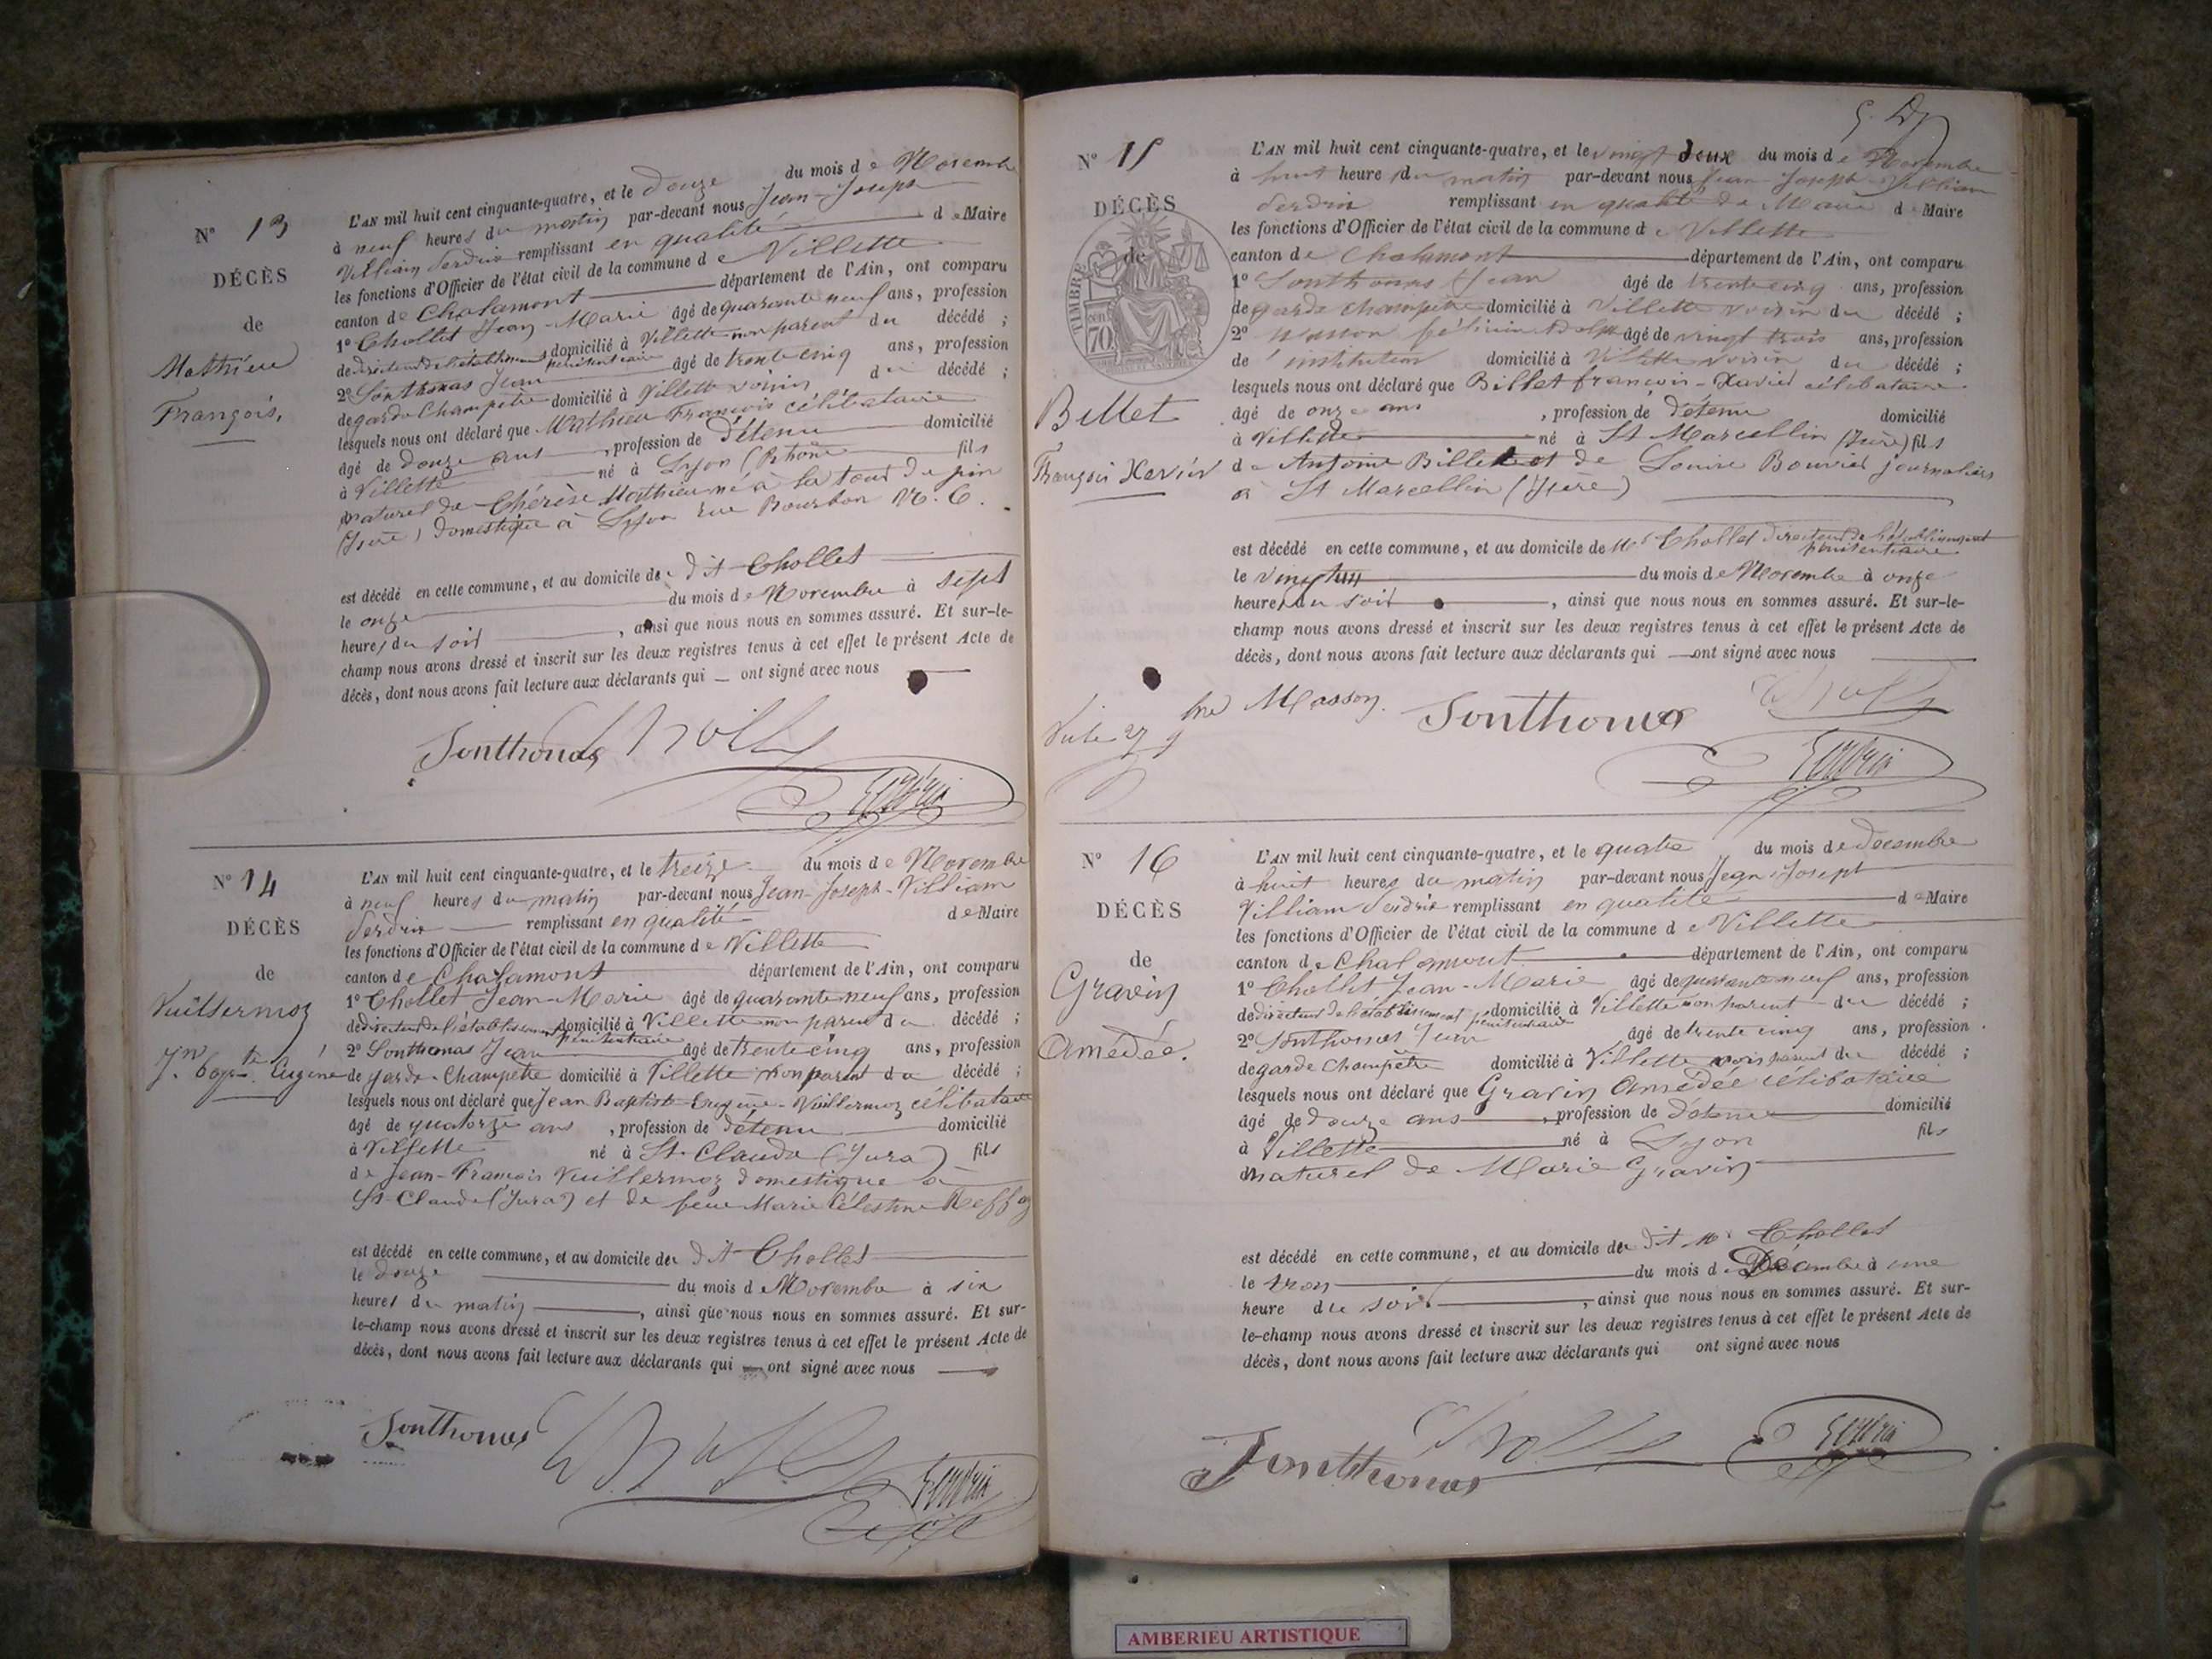 N° 13
DÉCÈS
de
Mathieu
François,
L'AN mil huit cent cinquante-quatre, et le douze du mois de Novembre
à neuf heures du matin par-devant nous Jean-Joseph
Villiam Serdrix remplissant en qualité de Maire
les fonctions d'Officier de l'état civil de la commune de Villette
canton de Chalamont département de l'Ain, ont comparu
1° Chollet Jean-Marie âgé de quarante neuf ans, profession
de directeur de l'établissement pénitentiaire domicilié à Villette non parent du décédé ;
2° Sonthonas Jean âgé de trente cinq ans, profession
de garde Champêtre domicilié à Villette voisin du décédé ;
lesquels nous ont déclaré que Mathieu François célibataire
âgé de douze ans , profession de détenu domicilié
à Villette né à Lyon (Rhône fils
naturel de Thérèse Mathieu né à la tour du pin
(Isère) domestique à Lyon rue Bourbon N. 6.
est décédé en cette commune, et au domicile de dit Chollet
le onze du mois de Novembre à sept
heures du soir , ainsi que nous nous en sommes assuré. Et sur-le-
champ nous avons dressé et inscrit sur les deux registres tenus à cet effet le présent Acte de
décès, dont nous avons fait lecture aux déclarants qui ont signé avec nous
Sonthonas Chollet
Serdrix
N° 14
DÉCÈS
de
Vuillermoz
Jn. Bapte. Eugène
L'AN mil huit cent cinquante-quatre, et le treize du mois de Novembre
à neuf heures du matin par-devant nous Jean-Joseph-Villiam
Serdrix remplissant en qualité de Maire
les fonctions d'Officier de l'état civil de la commune de Villette
canton de Chalamont département de l'Ain, ont comparu
1° Chollet Jean-Marie âgé de quarante neuf ans, profession
de directeur de l'établissement pénitentiaire domicilié à Villette non parent du décédé ;
2° Sonthonas Jean âgé de trente cinq ans, profession
de garde-Champêtre domicilié à Villette non parent du décédé ;
lesquels nous ont déclaré que Jean Baptiste Eugène-Vuillermoz célibataire
âgé de quatorze ans , profession de détenu domicilié
à Villette né à St. Claude (Jura) fils
de Jean-François Vuillermoz domestique à
St-Claude (Jura) et de feue Marie Célestine
est décédé en cette commune, et au domicile du dit Chollet
le douze du mois de Novembre à six
heures du matin , ainsi que nous nous en sommes assuré. Et sur-
le-champ nous avons dressé et inscrit sur les deux registres tenus à cet effet le présent Acte de
décès, dont nous avons fait lecture aux déclarants qui ont signé avec nous
Sonthonas Chollet
Serdrix
N° 15
DÉCÈS
de
TIMBRE
70
Billet
François Xavier
L'AN mil huit cent cinquante-quatre, et le vingt deux du mois de Novembre
à huit heure du matin par-devant nous Jean-Joseph-Villiam
Serdrix remplissant en qualité de Maire de Maire
les fonctions d'Officier de l'état civil de la commune de Villette
canton de Chalamont département de l'Ain, ont comparu
1° Sonthonas Jean âgé de trente cinq ans, profession
de garde champêtre domicilié à Villette voisin du décédé ;
2° Masson âgé de vingt trois ans, profession
de instituteur domicilié à Villette voisin du décédé ;
lesquels nous ont déclaré que Billet françois-Xavier célibataire
âgé de onze ans , profession de détenu domicilié
à Villette né à St Marcellin (Isère) fils
de Antoine Billet et de Louise Bouvier journaliers
à St Marcellin (Isère)
est décédé en cette commune, et au domicile de Mr Chollet directeur de l'établissement
pénitentiaire
le vingt un du mois de Novembre à onze
heures du soir , ainsi que nous nous en sommes assuré. Et sur-le-
champ nous avons dressé et inscrit sur les deux registres tenus à cet effet le présent Acte de
décès, dont nous avons fait lecture aux déclarants qui ont signé avec nous
Masson. Sonthonas Chollet
Serdrix
N° 16
DÉCÈS
de
Gravin
Amédée.
L'AN mil huit cent cinquante-quatre, et le quatre du mois de décembre
à huit heures du matin par-devant nous Jean-Joseph
Villiam Serdrix remplissant en qualité de Maire
les fonctions d'Officier de l'état civil de la commune de Villette
canton de Chalamont département de l'Ain, ont comparu
1° Chollet Jean-Marie âgé de quarante neuf ans, profession
de directeur de l'établissement pénitentiaire domicilié à Villette non parent du décédé ;
2° Sonthonas Jean âgé de trente cinq ans, profession
de garde Champêtre domicilié à Villette parent du décédé ;
lesquels nous ont déclaré que Gravin Amédée célibataire
âgé de douze ans , profession de détenu domicilié
à Villette né à Lyon fils
naturel de Marie Gravin
est décédé en cette commune, et au domicile du dit Mr Chollet
le trois du mois de Décembre à une
heure du soir , ainsi que nous nous en sommes assuré. Et sur-
le-champ nous avons dressé et inscrit sur les deux registres tenus à cet effet le présent Acte de
décès, dont nous avons fait lecture aux déclarants qui ont signé avec nous
Sonthonas Chollet Serdrix
AMBERIEU ARTISTIQUE